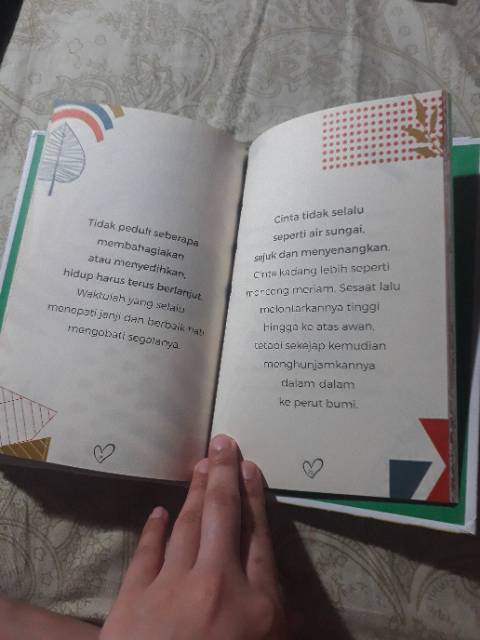 Tidak peduli seberapa
membahagiakan
atau menyedihkan,
hidup harus terus berlanjut.
Waktulah yang selalu
menepati janji dan berbaik hati
mengobati segalanya.
Cinta tidak selalu
seperti air sungai,
sejuk dan menyenangkan.
Cinta kadang lebih seperti
moncong meriam. Sesaat lalu
melontarkannya tinggi
hingga ke atas awan,
tetapi sekejap kemudian
menghunjamkannya
dalam dalam
ke perut bumi.